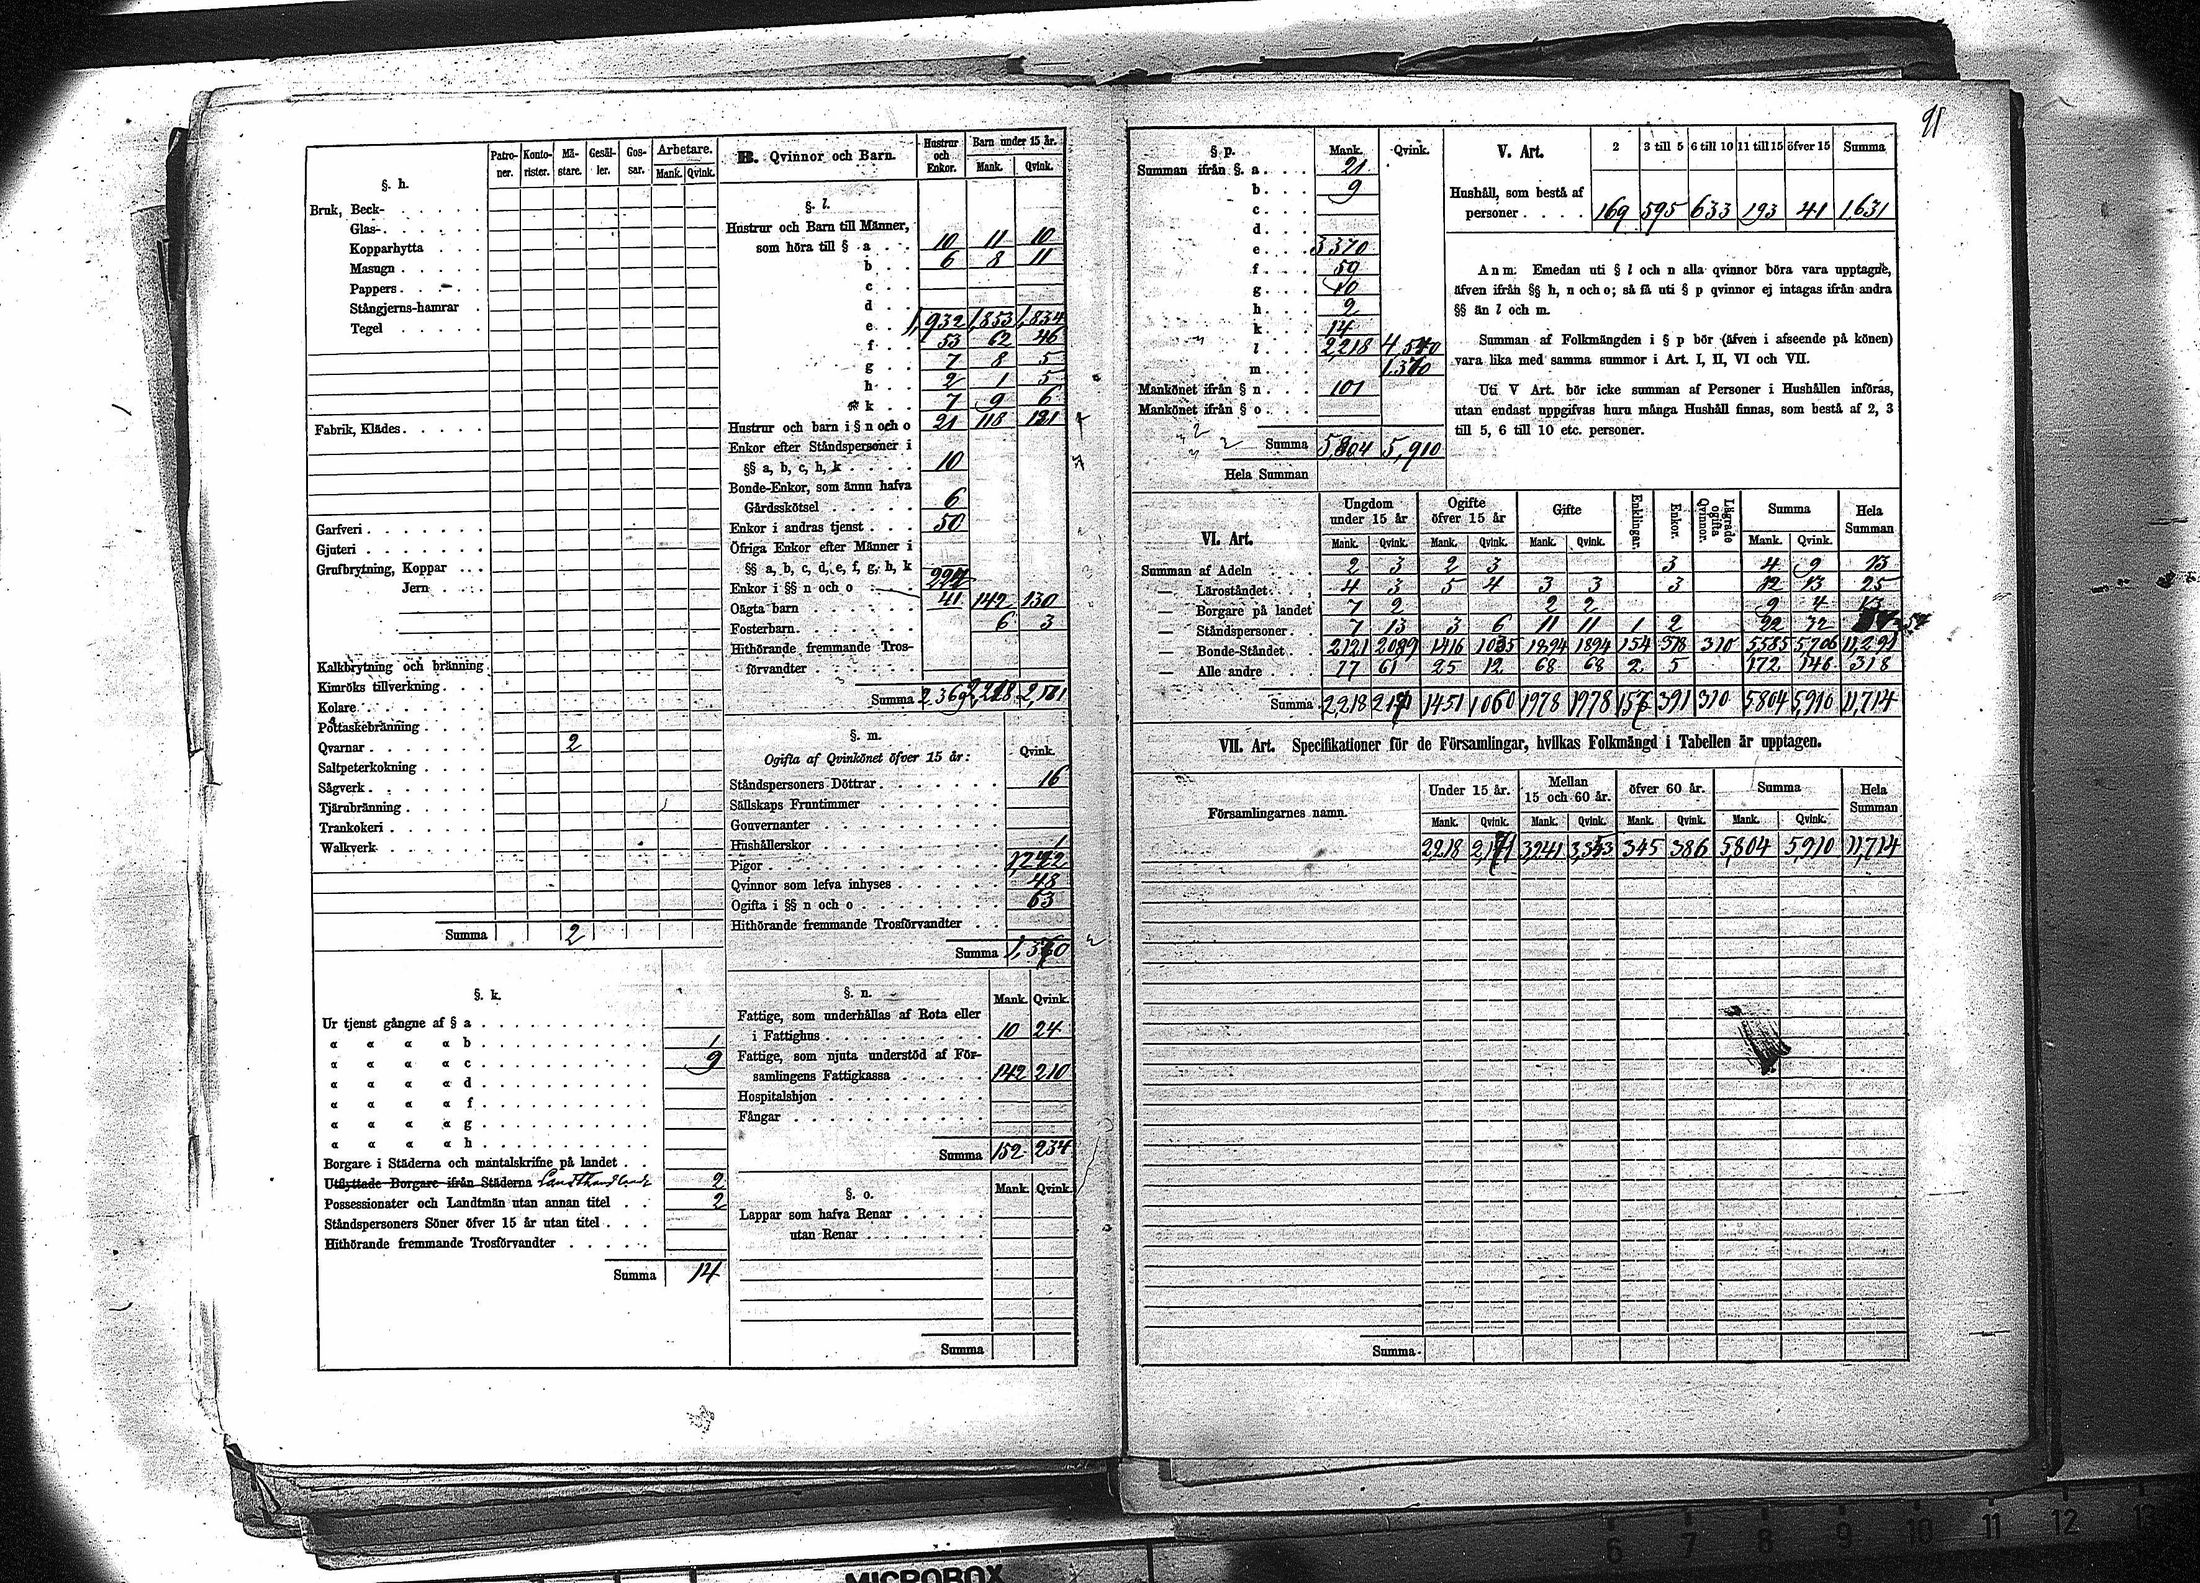 91
§. h.
Patro-ner. Konto-rister. Mä-stare. Gesäl-ler. Gos-sar. Arbetare. Mank. Qvink.
Bruk, Beck-
Glas-
Kopparhytta
Masugn
Pappers
Stångjerns-hamrar
Tegel
Fabrik, Klädes
Garfveri
Gjuteri
Grufbrytning, Koppar
Jern
Kalkbrytning och bränning
Kimröks tillverkning
Kolare
Pottaskebränning
Qvarnar 2
Saltpeterkokning
Sågverk
Tjärubränning
Trankokeri
Walkverk
Summa 2
§. k.
Ur tjenst gångne af § a
« « « « b 1
« « « « c 9
« « « « d
« « « « f
« « « « g
« « « « h
Borgare i Städerna och mantalskrifne på landet
Utflyttade Borgare ifrån Städerna 2
Possessionater och Landtmän utan annan titel 2
Ståndspersoners Söner öfver 15 år utan titel
Hithörande fremmande Trosförvandter
Summa 14
B. Qvinnor och Barn. Hustrur och Enkor. Barn under 15 år. Mank. Qvink.
§. l.
Hustrur och Barn till Männer,
som höra till § a 10 11 10
b 6 8 11
c
d
e 1,932 1,853 1,834
f 53 62 46
g 7 8 5
h 2 1 5
k 7 9 6
Hustrur och barn i § n och o 21 118 121
Enkor efter Ståndspersoner i
§§ a, b, c, h, k 10
Bonde-Enkor, som ännu hafva
Gårdsskötsel 6
Enkor i andras tjenst 50
Öfriga Enkor efter Männer i
§§ a, b, c, d, e, f, g, h, k
Enkor i §§ n och o
Oägta barn 41 142 130
Fosterbarn 6 3
Hithörande fremmande Tros-
förvandter
Summa 2,369 2,218 2,171
§. m.
Ogifta af Qvinkönet öfver 15 år: Qvink.
Ståndspersoners Döttrar 16
Sällskaps Fruntimmer
Gouvernanter
Hushållerskor 1
Pigor 1,242
Qvinnor som lefva inhyses 48
Ogifta i §§ n och o 63
Hithörande fremmande Trosförvandter
Summa 1,370
§. n. Mank. Qvink.
Fattige, som underhållas af Rota eller
i Fattighus 10 24
Fattige, som njuta understöd af För-
samlingens Fattigkassa 142 210
Hospitalshjon
Fångar
Summa 152 234
§. o. Mank. Qvink.
Lappar som hafva Renar
utan Renar
Summa
§ p. Mank. Qvink.
Summan ifrån §. a 21
b 9
c
d
e 3370
f 59
g 10
h 2
k 14
l 2,218 4,540
m 1,370
Mankönet ifrån § n 101
Mankönet ifrån § o
Summa 5,804 5,910
Hela Summan
V. Art. 2 3 till 5 6 till 10 11 till 15 öfver 15 Summa
Hushåll, som bestå af
personer 169 595 633 193 41 1,631
Anm: Emedan uti § l och n alla qvinnor böra vara upptagne,
äfven ifrån §§ h, n och o; så få uti § p qvinnor ej intagas ifrån andra
§§ än l och m.
Summan af Folkmängden i § p bör (äfven i afseende på könen)
vara lika med samma summor i Art. I, II, VI och VII.
Uti V Art. bör icke summan af Personer i Hushållen införas,
utan endast uppgifvas huru många Hushåll finnas, som bestå af 2, 3
till 5, 6 till 10 etc. personer.
VI. Art. Ungdom under 15 år Ogifte öfver 15 år Gifte Enklingar. Enkor. Lägrade ogifta Qvinnor. Summa Hela Summan
Mank. Qvink. Mank. Qvink. Mank. Qvink. Mank. Qvink.
Summan af Adeln 2 3 2 3 3 4 9 13
— Läroståndet 4 3 5 4 3 3 3 12 13 25
— Borgare på landet 7 2 2 2 9 4 13
— Ståndspersoner 7 13 3 6 11 11 1 2 22 32 54
— Bonde-Ståndet 2121 2089 1416 1035 1894 1894 154 378 310 5585 5706 11,291
— Alle andre 77 61 25 12 68 68 2 5 172 146 318
Summa 2,218 2171 1451 1060 1978 1978 157 391 310 5804 5,910 11,714
VII. Art. Specifikationer för de Församlingar, hvilkas Folkmängd i Tabellen är upptagen.
Församlingarnes namn. Under 15 år. Mellan 15 och 60 år. öfver 60 år. Summa Hela Summan
Mank. Qvink. Mank. Qvink. Mank. Qvink. Mank. Qvink.
2218 2,171 3241 3,353 345 386 5,804 5,910 11,714
Summa
6 7 8 9 10 11 12 13
MICROBOX